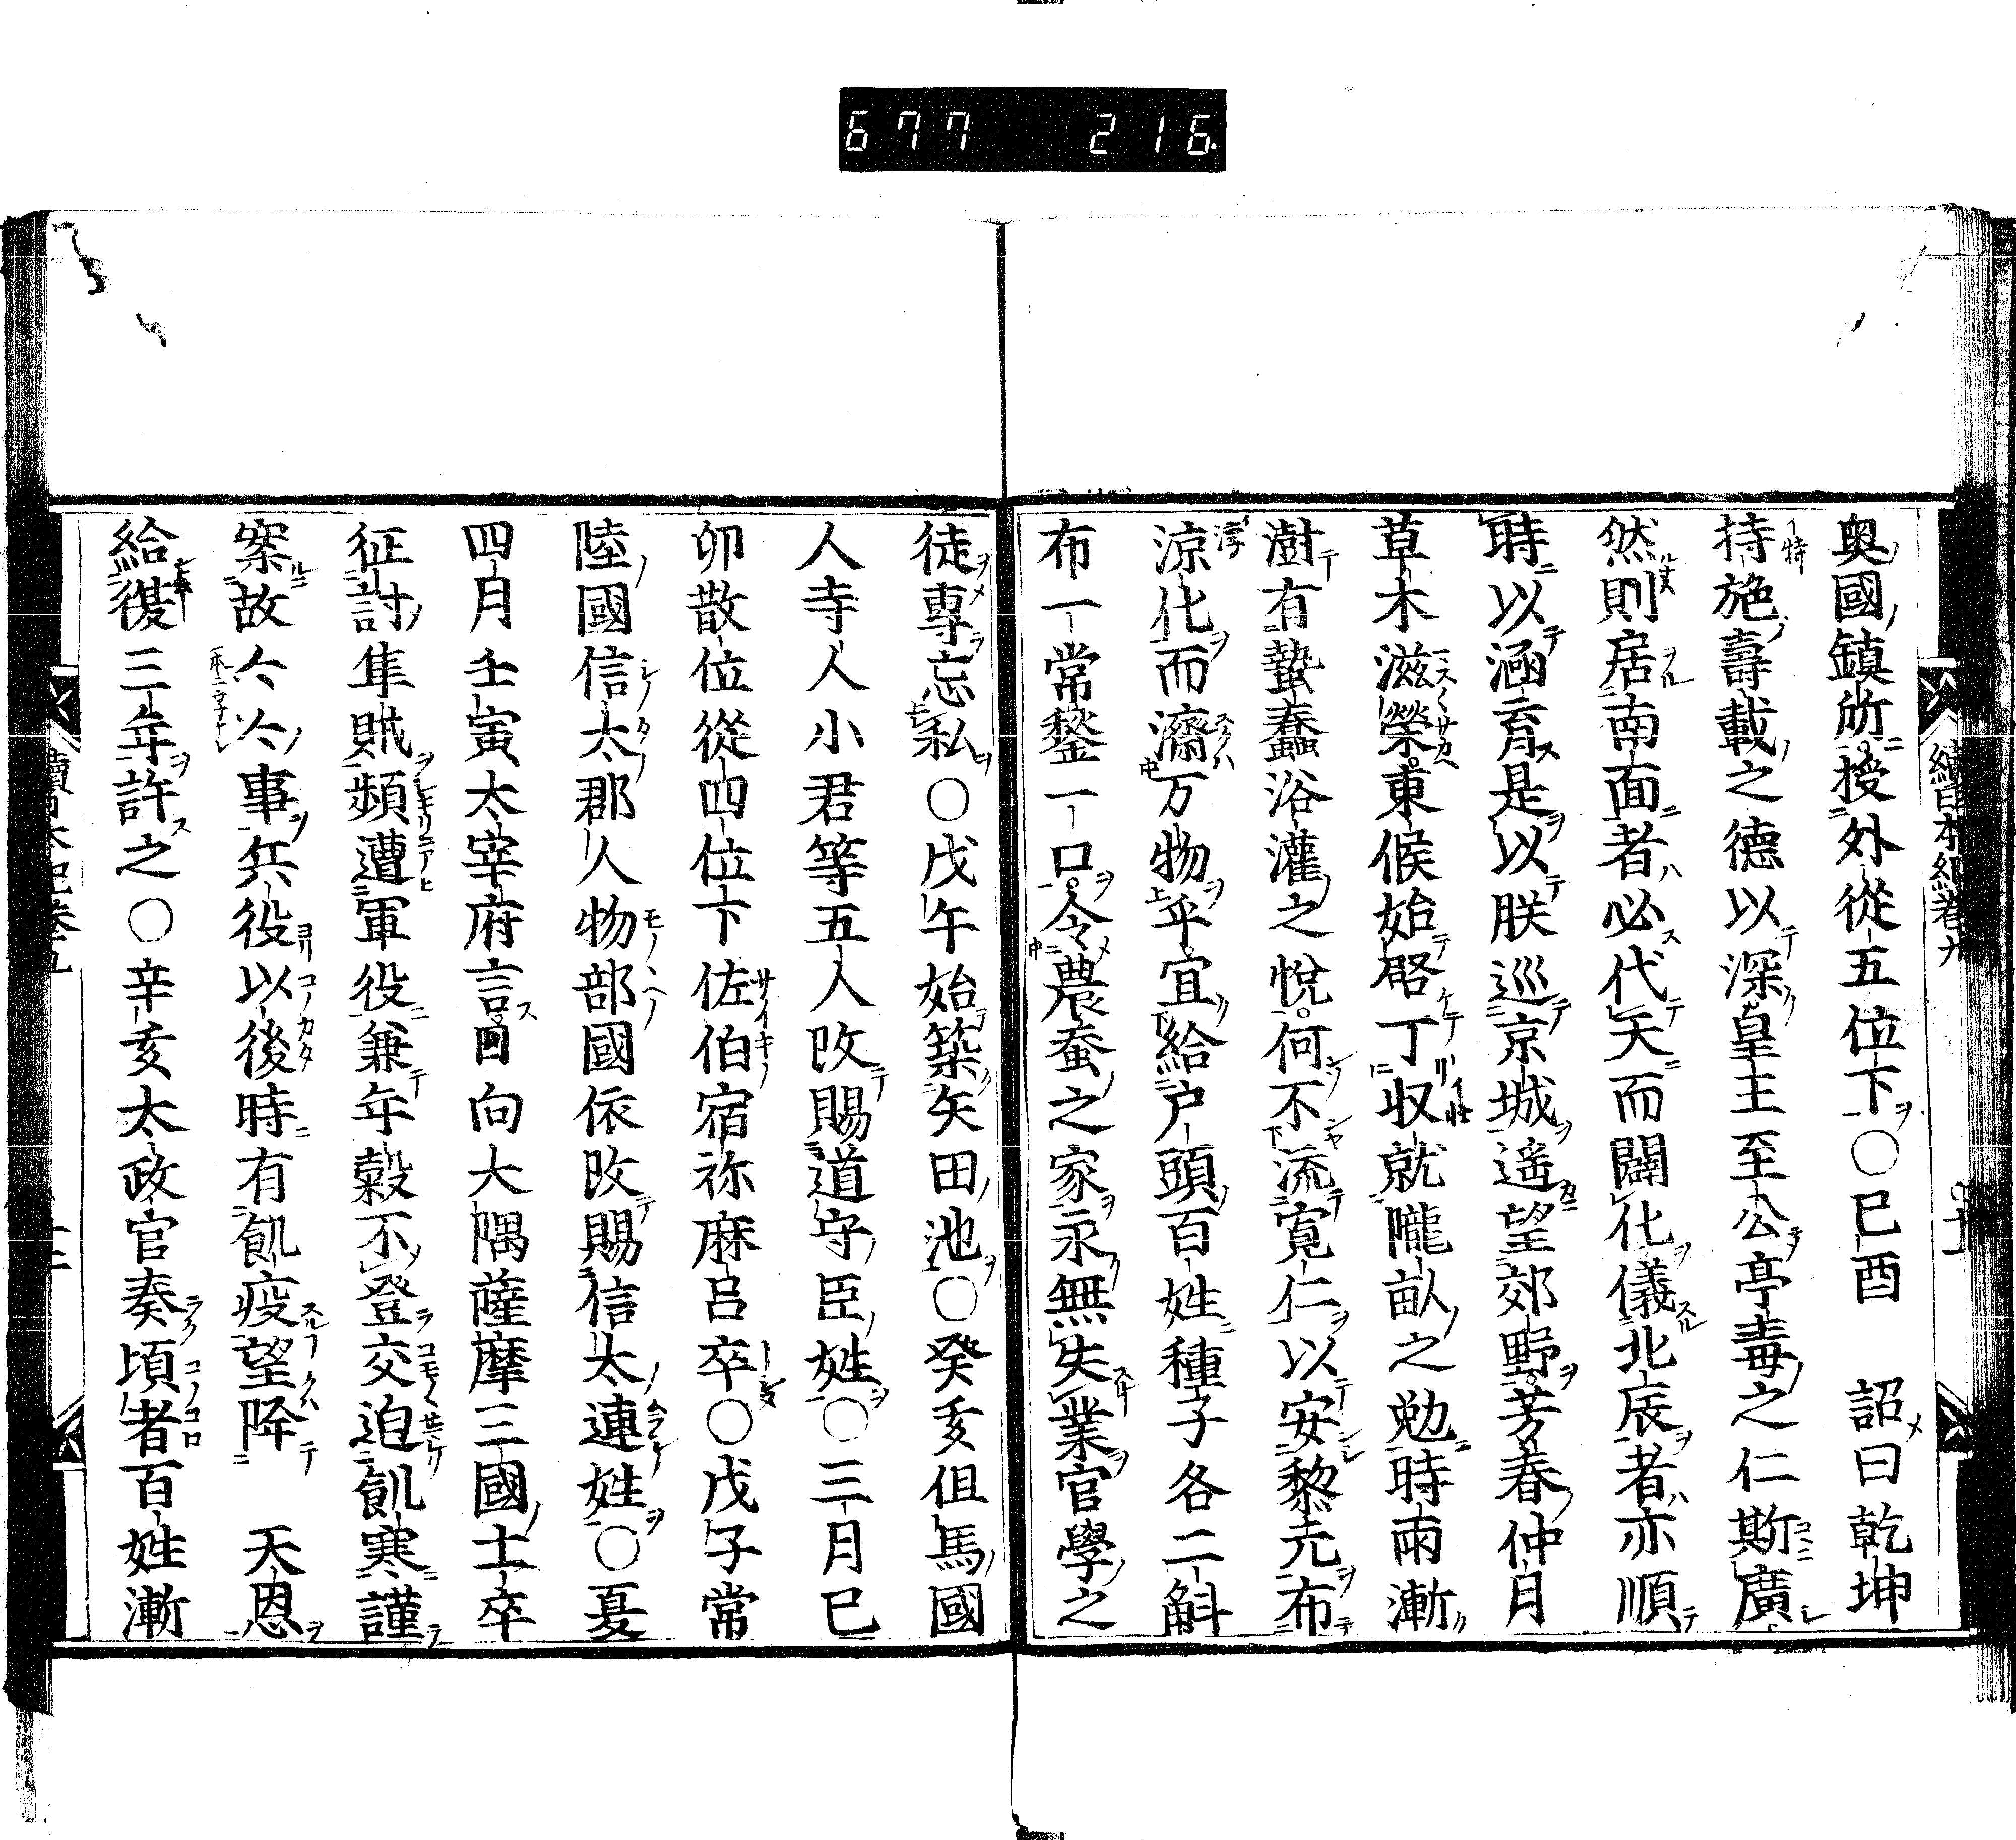 677 216
續日本紀卷九
奧國鎮所授外從五位下○已酉 詔曰乾坤
持施壽載之德以深皇王至公亭毒之仁斯廣
然則居南面者必代天而闢化儀北辰者亦順
時以涵育是以朕巡京城遥望郊野芳春仲月
草木滋榮東候始啓丁収就隴畝之勉時雨漸
澍有蟄蠢浴灌之悅何不流寛仁以安黎元布
涼化而濟万物乎宜給户頭百姓種子各二斛
布一常鍫一口令農蚕之家永無失業官學之
徒專忘私○戊午始築矢田池○癸亥伹馬國
人寺人小君等五人攺賜道守臣姓○三月巳
卯散位從四位下佐伯宿祢麻呂卒○戊子常
陸國信太郡人物部國依攺賜信太連姓○夏
四月壬寅太宰府言日向大隅薩摩三國士卒
征討隼賊頻遭軍役兼年穀不登交迫飢寒謹
案故亽亽事兵役以後時有飢疫望降 天恩
給復三年許之○辛亥太政官奏頃者百姓漸
續日本紀卷九